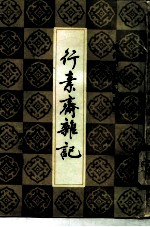 行素齋雜記